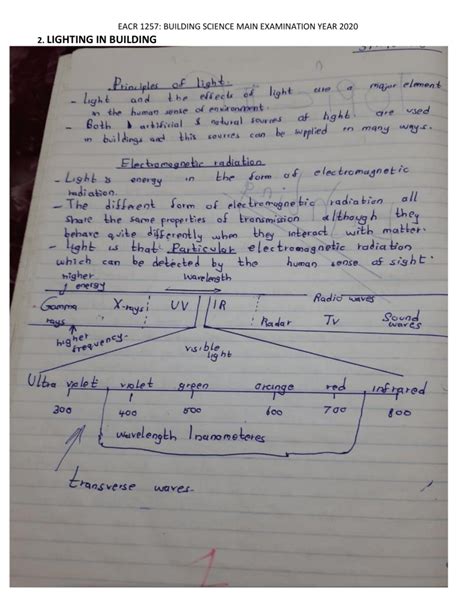 EACR 1257: BUILDING SCIENCE MAIN EXAMINATION YEAR 2020
2. LIGHTING IN BUILDING
Principles of light.
- Light and the effects of light are a major element
in the human sense of environment.
- Both artificial & natural sources of light are used
in buildings and this sources can be applied in many ways.
Electromagnetic radiation
- Light is energy in the form of electromagnetic
radiation.
- The different form of electromagnetic radiation all
share the same properties of transmision although they
behave quite differently when they interact with matter.
- light is that Particular electromagnetic radiation
which can be detected by the human sense of sight.
higher energy wavelength
Gamma rays X-rays UV IR Radar Radio waves TV Sound waves
higher frequency.
visible light
Ultra violet violet green orange red infrared
300 400 500 600 700 800
wavelength nanometeres
transverse waves.
1